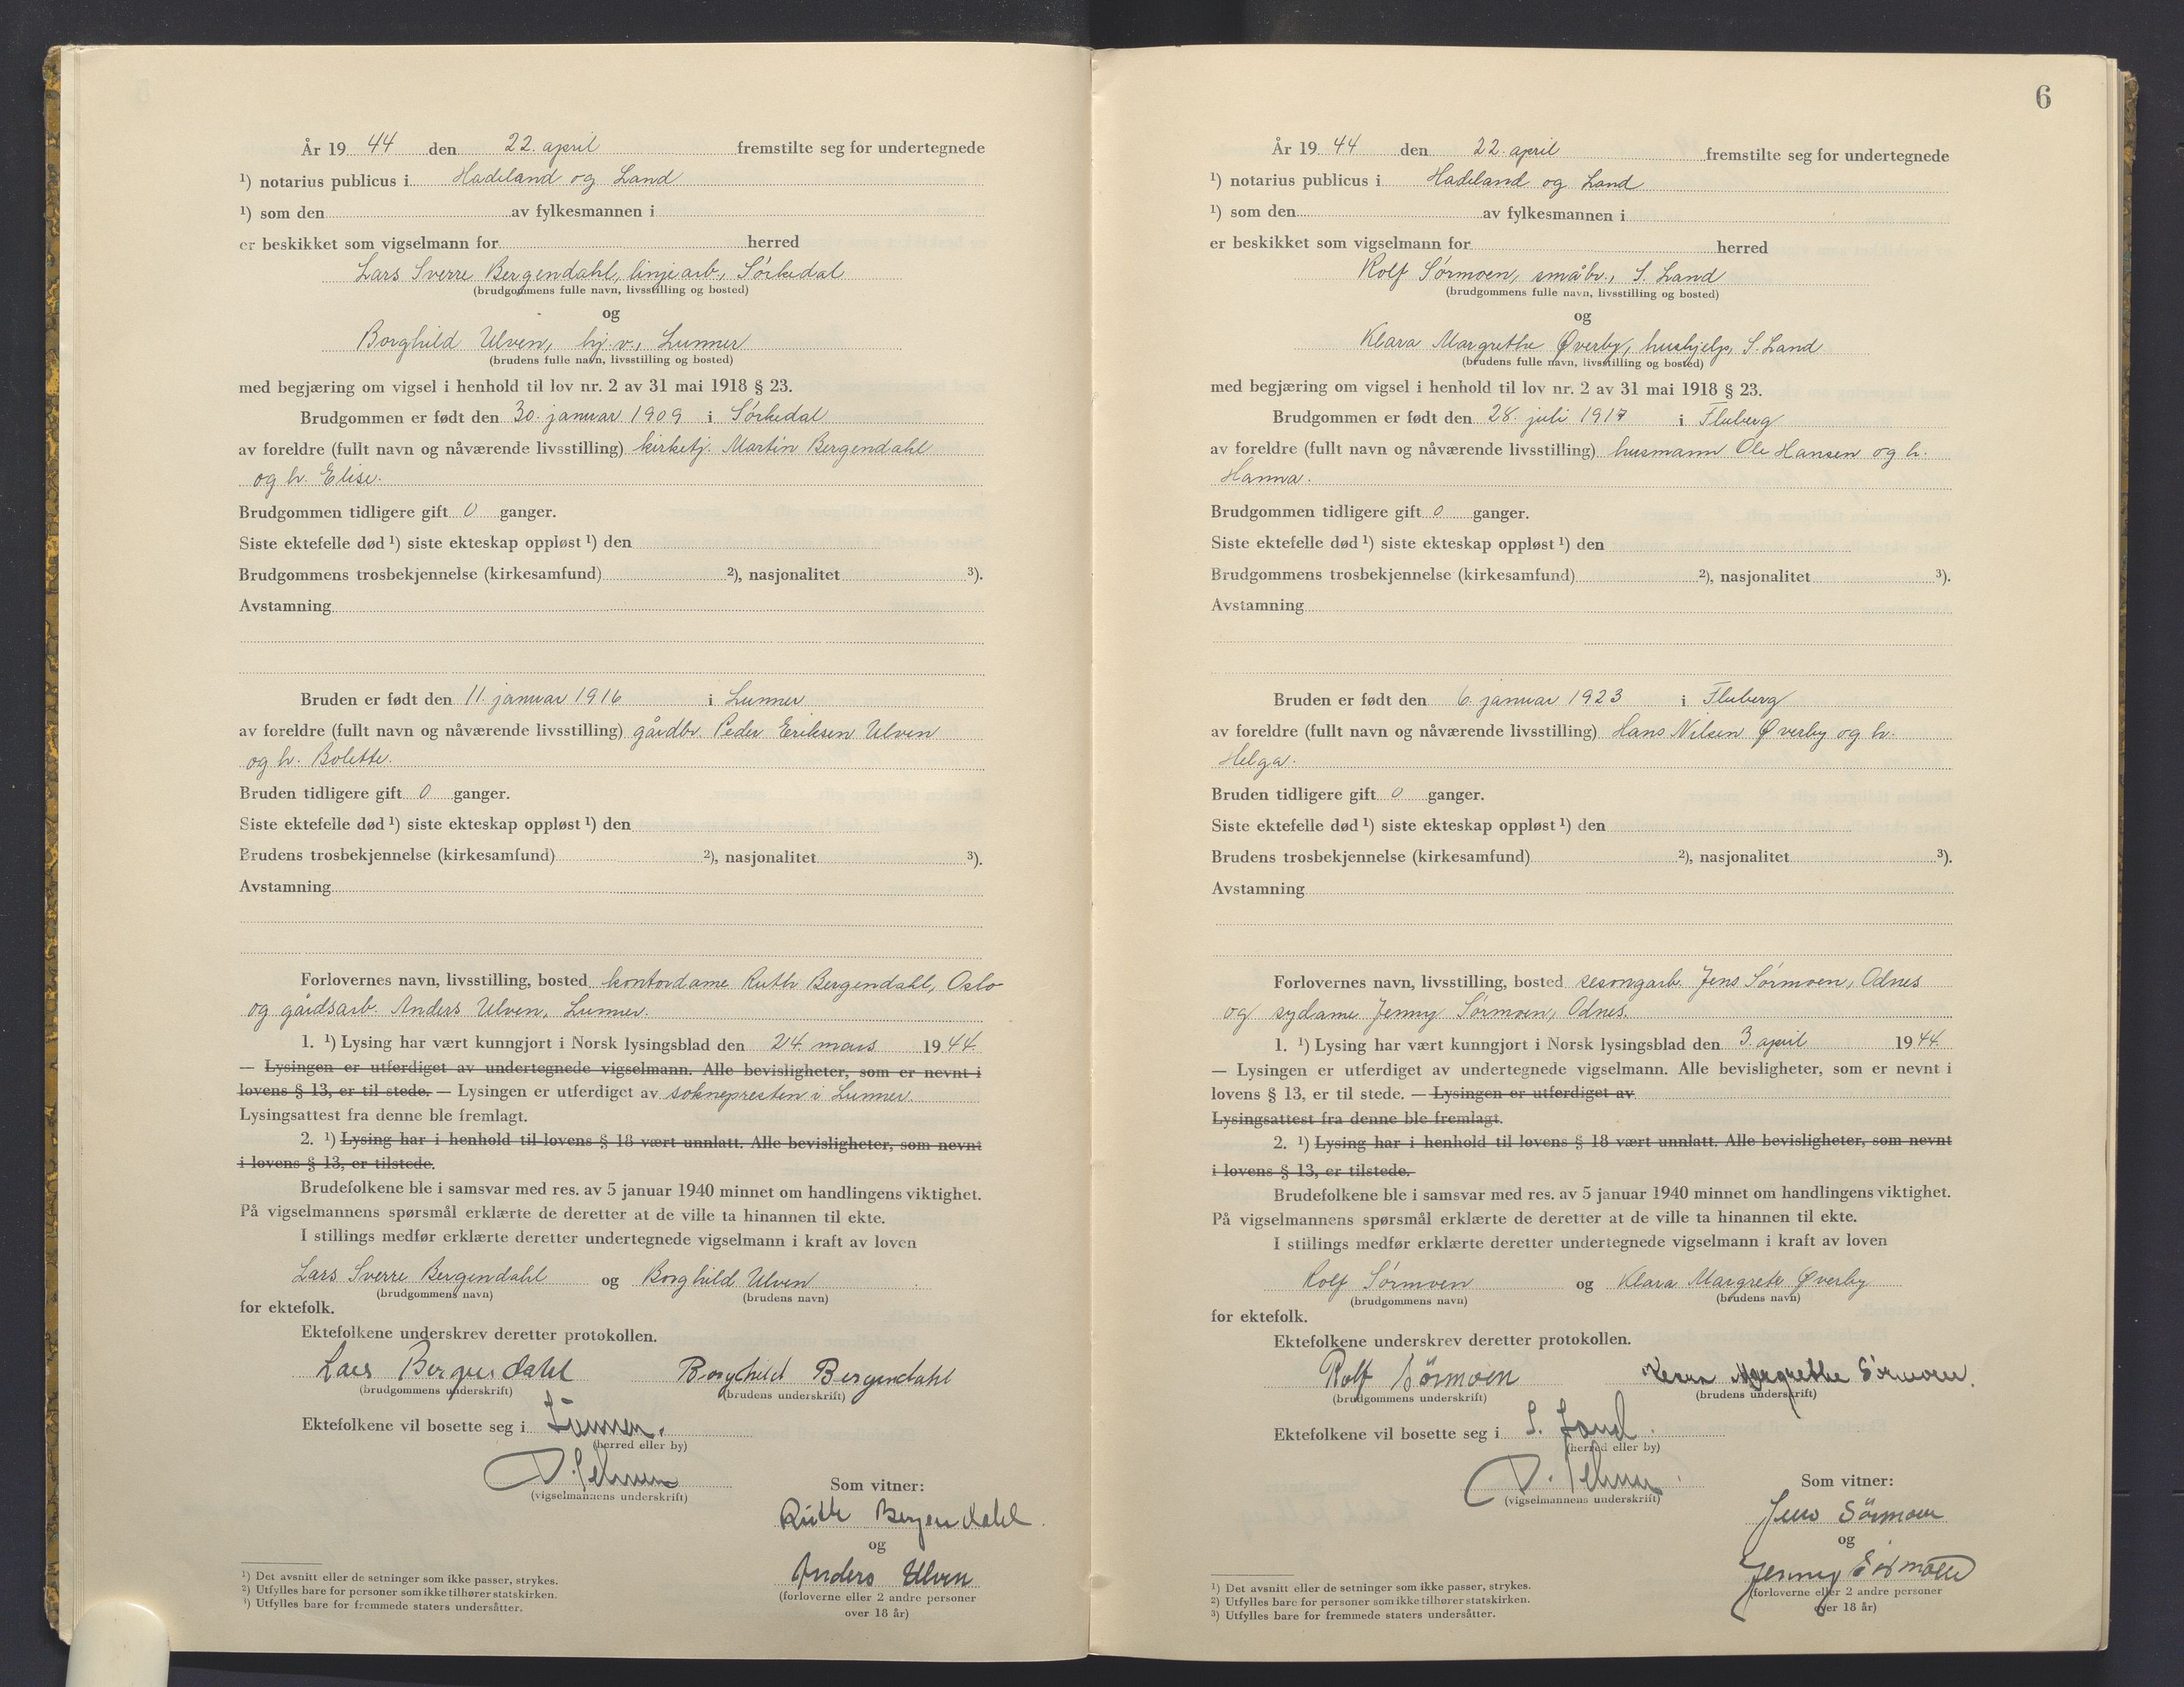 År 19 44 den 22. april fremstilte seg for undertegnede
¹) notarius publicus i Hadeland og Land
¹) som den av fylkesmannen i
er beskikket som vigselmann for herred
Lars Sverre Bergendahl, linjearb., Sørkedal
(brudgommens fulle navn, livsstilling og bosted)
og
Borghild Ulven, hj.v., Lunner
(brudens fulle navn, livsstilling og bosted)
med begjæring om vigsel i henhold til lov nr. 2 av 31 mai 1918 § 23.
Brudgommen er født den 30. januar 1909 i Sørkedal
av foreldre (fullt navn og nåværende livsstilling) kirketj. Martin Bergendahl
og h. Elise.
Brudgommen tidligere gift 0 ganger.
Siste ektefelle død ¹) siste ekteskap oppløst ¹) den
Brudgommens trosbekjennelse (kirkesamfund) ²), nasjonalitet ³).
Avstamning
Bruden er født den 11. januar 1916 i Lunner
av foreldre (fullt navn og nåværende livsstilling) gårdbr. Peder Eriksen Ulven
og h. Bolette.
Bruden tidligere gift 0 ganger.
Siste ektefelle død ¹) siste ekteskap oppløst ¹) den
Brudens trosbekjennelse (kirkesamfund) ²), nasjonalitet ³).
Avstamning
Forlovernes navn, livsstilling, bosted kontordame Ruth Bergendahl, Oslo
og gårdsarb. Anders Ulven, Lunner.
1. ¹) Lysing har vært kunngjort i Norsk lysingsblad den 24. mars 1944.
— Lysingen er utferdiget av undertegnede vigselmann. Alle bevisligheter, som er nevnt i
lovens § 13, er til stede. — Lysingen er utferdiget av soknepresten i Lunner.
Lysingsattest fra denne ble fremlagt.
2. ¹) Lysing har i henhold til lovens § 18 vært unnlatt. Alle bevisligheter, som nevnt
i lovens § 13, er tilstede.
Brudefolkene ble i samsvar med res. av 5 januar 1940 minnet om handlingens viktighet.
På vigselmannens spørsmål erklærte de deretter at de ville ta hinannen til ekte.
I stillings medfør erklærte deretter undertegnede vigselmann i kraft av loven
Lars Sverre Bergendahl og Borghild Ulven
(brudgommens navn) (brudens navn)
for ektefolk.
Ektefolkene underskrev deretter protokollen.
Lars Bergendahl Borghild Bergendahl
(brudgommens underskrift) (brudens underskrift)
Ektefolkene vil bosette seg i Lunner.
(herred eller by)
(vigselmannens underskrift)
Som vitner:
Ruth Bergendahl.
og
Anders Ulven
(forloverne eller 2 andre personer
over 18 år)
¹) Det avsnitt eller de setninger som ikke passer, strykes.
²) Utfylles bare for personer som ikke tilhører statskirken.
³) Utfylles bare for fremmede staters undersåtter.
6
År 19 44 den 22. april fremstilte seg for undertegnede
¹) notarius publicus i Hadeland og Land
¹) som den av fylkesmannen i
er beskikket som vigselmann for herred
Rolf Sørmoen, småbr., S. Land
(brudgommens fulle navn, livsstilling og bosted)
og
Klara Margrethe Øverby, hushjelp, S. Land
(brudens fulle navn, livsstilling og bosted)
med begjæring om vigsel i henhold til lov nr. 2 av 31 mai 1918 § 23.
Brudgommen er født den 28. juli 1917 i Fluberg
av foreldre (fullt navn og nåværende livsstilling) husmann Ole Hansen og h.
Hanna.
Brudgommen tidligere gift 0 ganger.
Siste ektefelle død ¹) siste ekteskap oppløst ¹) den
Brudgommens trosbekjennelse (kirkesamfund) ²), nasjonalitet ³).
Avstamning
Bruden er født den 6. januar 1923 i Fluberg
av foreldre (fullt navn og nåværende livsstilling) Hans Nilsen Øverby og h.
Helga.
Bruden tidligere gift 0 ganger.
Siste ektefelle død ¹) siste ekteskap oppløst ¹) den
Brudens trosbekjennelse (kirkesamfund) ²), nasjonalitet ³).
Avstamning
Forlovernes navn, livsstilling, bosted sesongarb. Jens Sørmoen, Odnes
og sydame Jenny Sørmoen, Odnes.
1. ¹) Lysing har vært kunngjort i Norsk lysingsblad den 3. april 1944.
— Lysingen er utferdiget av undertegnede vigselmann. Alle bevisligheter, som er nevnt i
lovens § 13, er til stede. — Lysingen er utferdiget av
Lysingsattest fra denne ble fremlagt.
2. ¹) Lysing har i henhold til lovens § 18 vært unnlatt. Alle bevisligheter, som nevnt
i lovens § 13, er tilstede.
Brudefolkene ble i samsvar med res. av 5 januar 1940 minnet om handlingens viktighet.
På vigselmannens spørsmål erklærte de deretter at de ville ta hinannen til ekte.
I stillings medfør erklærte deretter undertegnede vigselmann i kraft av loven
Rolf Sørmoen og Klara Margrete Øverby
(brudgommens navn) (brudens navn)
for ektefolk.
Ektefolkene underskrev deretter protokollen.
Rolf Sörmoen Klara Margrethe Sörmoen.
(brudgommens underskrift) (brudens underskrift)
Ektefolkene vil bosette seg i S. Land.
(herred eller by)
(vigselmannens underskrift)
Som vitner:
Jens Sörmoen
og
Jenny Sörmoen
(forloverne eller 2 andre personer
over 18 år)
¹) Det avsnitt eller de setninger som ikke passer, strykes.
²) Utfylles bare for personer som ikke tilhører statskirken.
³) Utfylles bare for fremmede staters undersåtter.